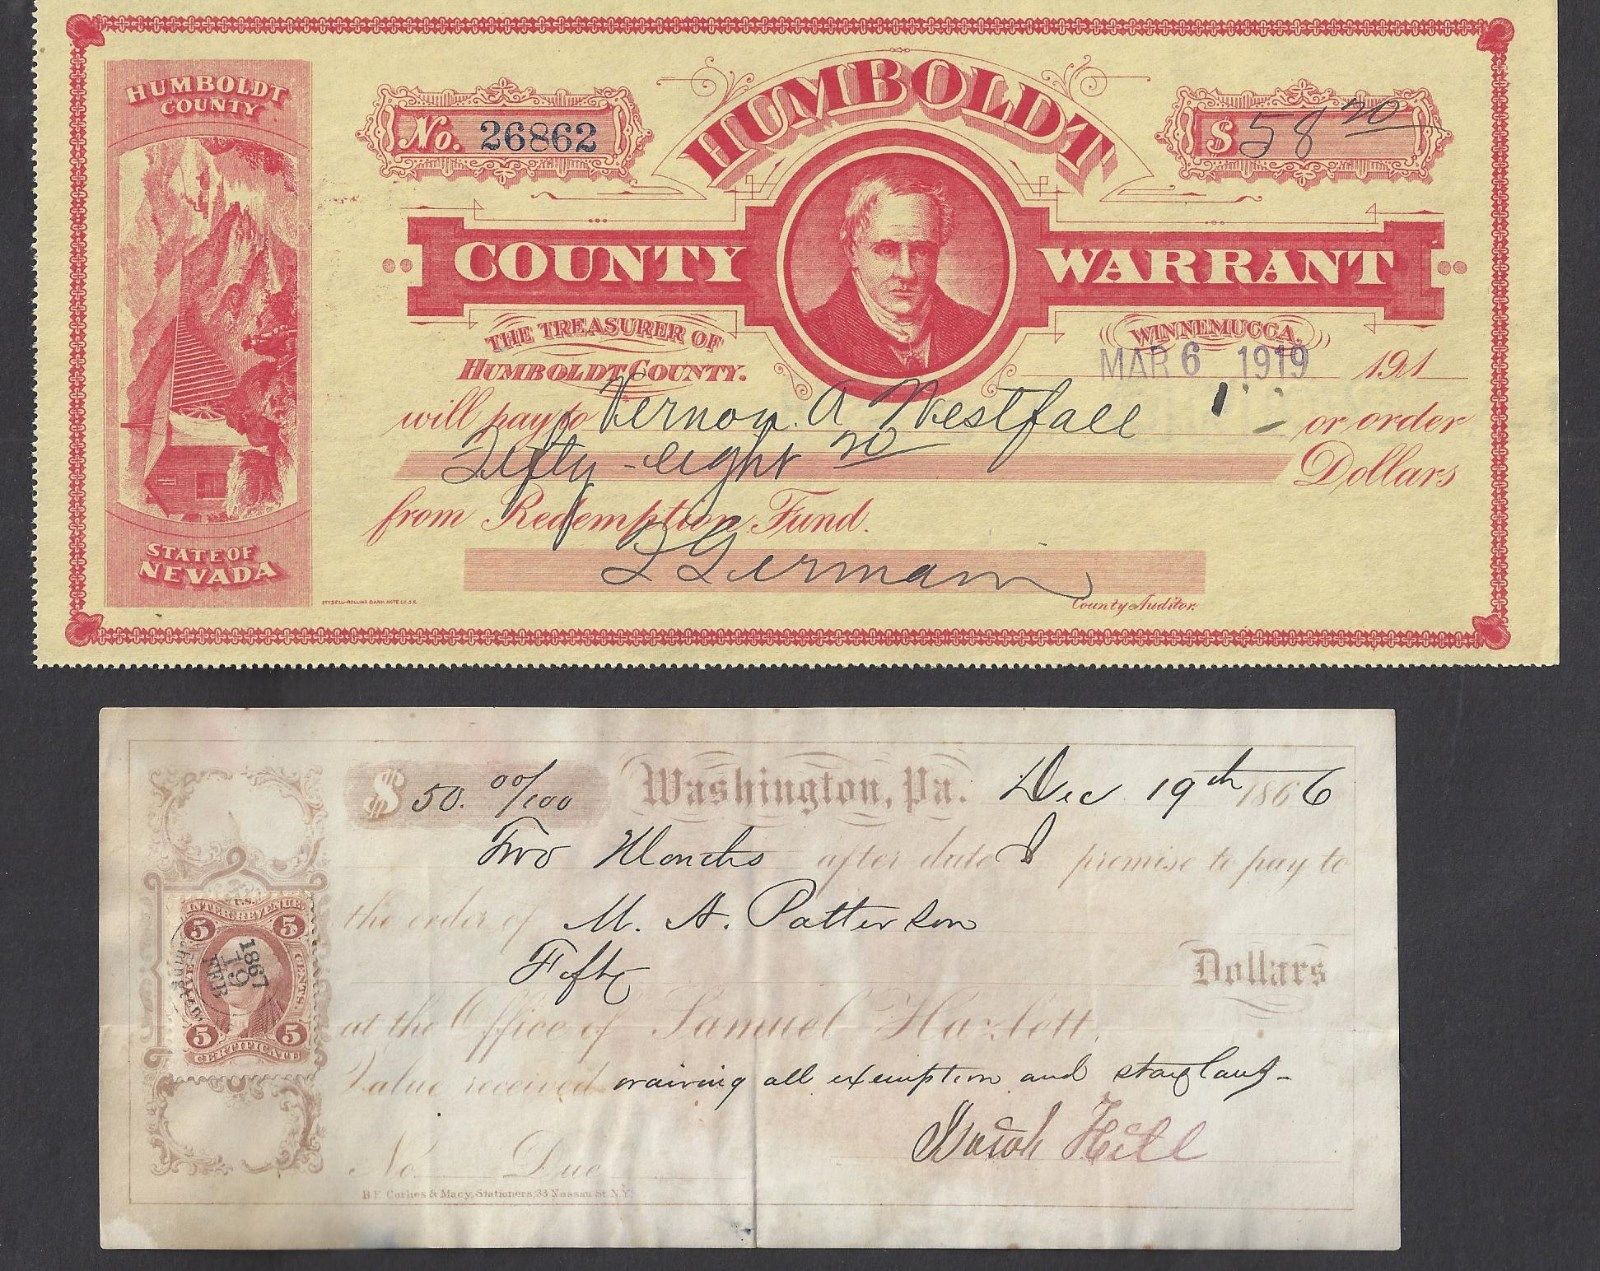 HUMBOLDT
COUNTY
No. 26862
HUMBOLDT
$58 20
COUNTY WARRANT
THE TREASURER OF
HUMBOLDT COUNTY.
WINNEMUCCA,
MAR 6 1919 191
will pay to Vernon A Westfall or order
Fifty-eight 20 Dollars
from Redemption Fund.
STATE OF
NEVADA
County Auditor.
$ 50. 00/100 Washington, Pa. Dec 19th 1866
Two Months after date I promise to pay to
the order of M. A. Patterson
Fifty Dollars
at the Office of Samuel Hazlett,
Value received waiving all exemption and stay laws-
Hill
No. Due
B.F. Corlies & Macy, Stationers, 33 Nassau St. N.Y.
INTER. REVENUE
5 5
FIVE CENTS
1867
19
FEB
5 5
CERTIFICATE